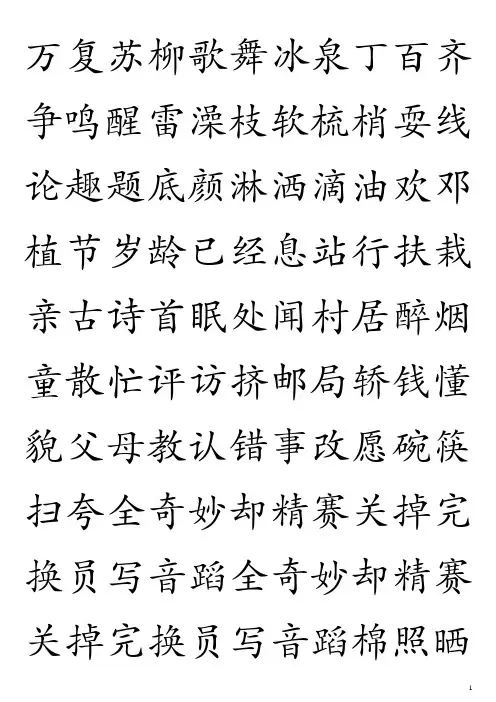 万复苏柳歌舞冰泉丁百齐
争鸣醒雷澡枝软梳梢耍线
论趣题底颜淋洒滴油欢邓
植节岁龄已经息站行扶栽
亲古诗首眠处闻村居醉烟
童散忙评访挤邮局轿钱懂
貌父母教认错事改愿碗筷
扫夸全奇妙却精赛关掉完
换员写音蹈全奇妙却精赛
关掉完换员写音蹈棉照晒
1